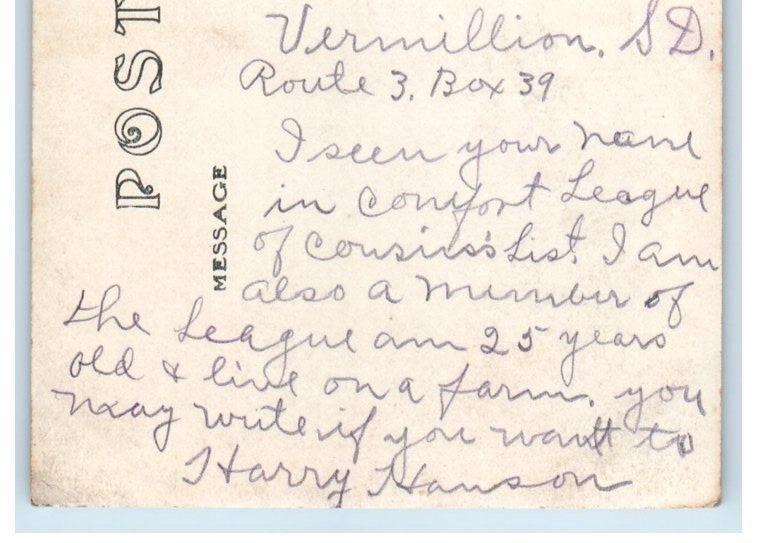 POST
MESSAGE
Vermillion. S D.
Route 3. Box 39
I seen your name
in Comfort League
of Cousins's List I am
also a member of
the League am 25 years
old & live on a farm. you
may write if you want to
Harry Hanson